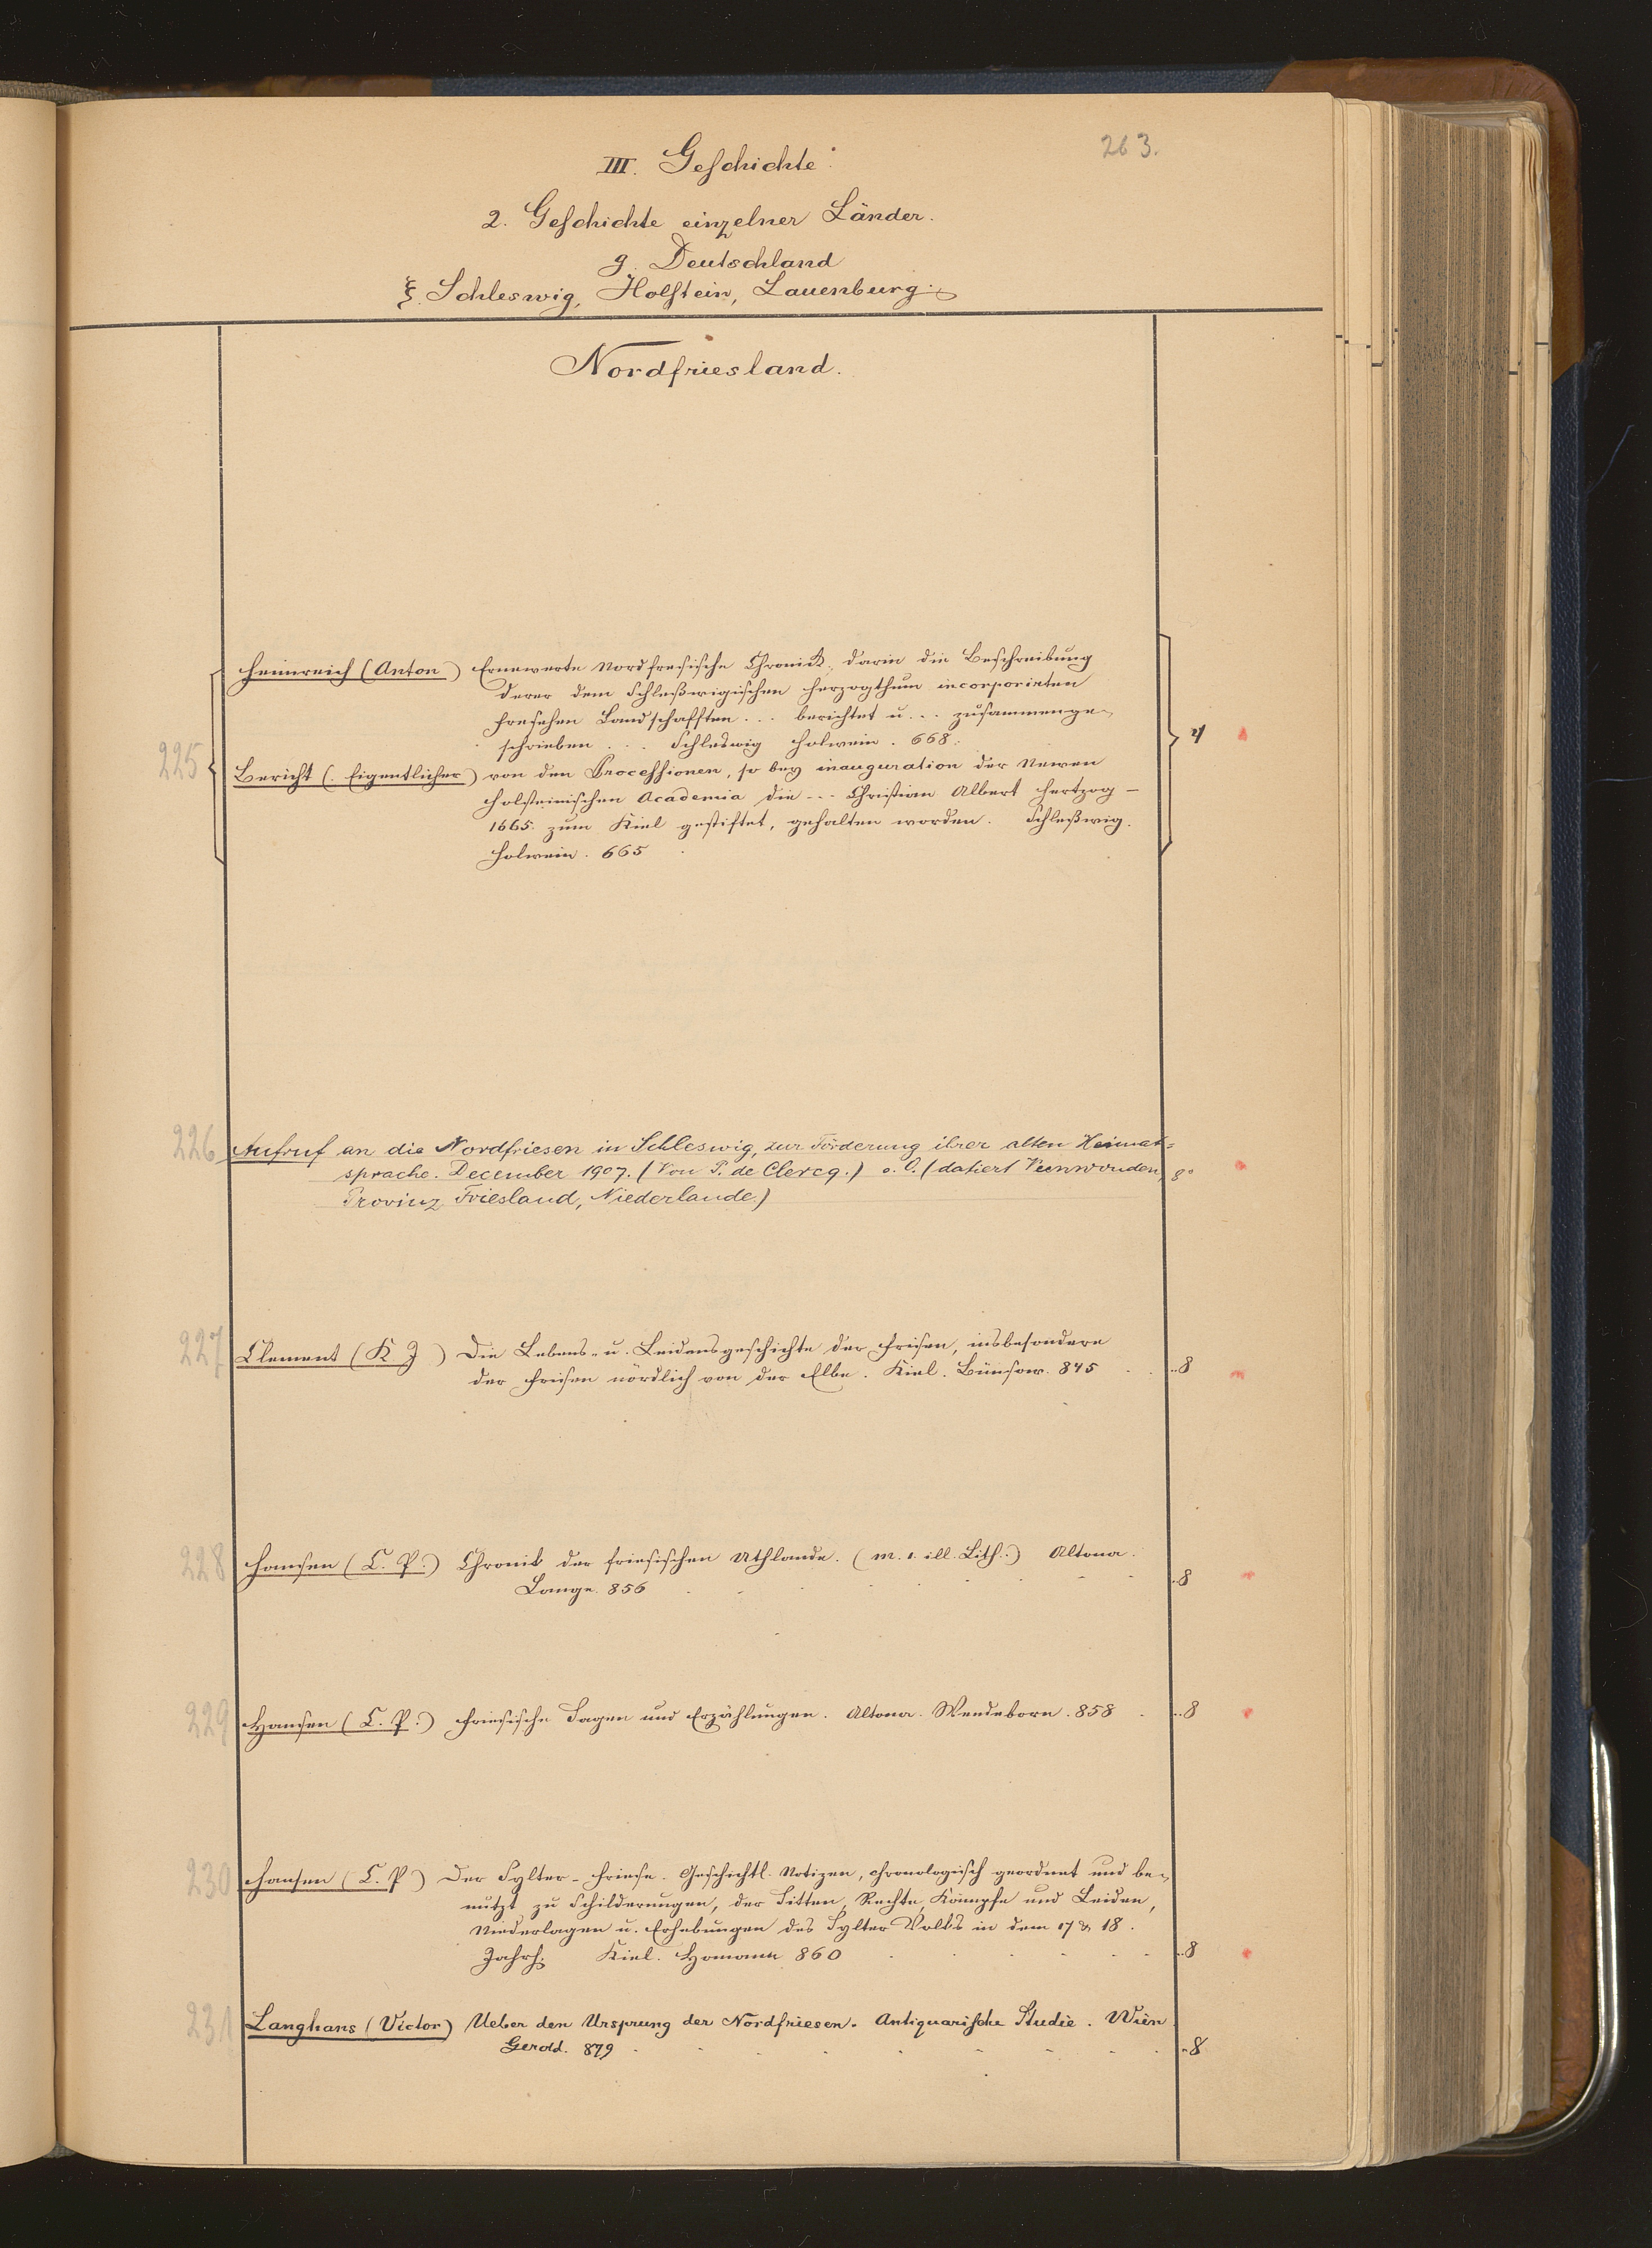 263.
III. Geschichte.
2. Geschichte einzelner Länder.
g. Deutschland
ξ. Schleswig, Holstein, Lauenburg.
Nordfriesland.
Heimreich (Anton) Ernewerte Nordfresische Chronick, darin die Beschreibung
derer dem Schleßwigischen Herzogthum incorporirten
fresehen Landschafften ... berichtet u. .. zusammenge-
schrieben ... Schleswig Holwein. 668.
225 Bericht (: Eigentlicher) von den Processionen, so bey inauguration der Newen
Holsteinischen Academia die --- Christian Albert Hertzog -
1665. zum Kiel gestiftet, gehalten worden. Schleßwig.
Holwein. 665
4
226 Aufruf an die Nordfriesen in Schleswig, zur Förderung ihrer alten Heimat=
sprache. December 1907. (Von P. de Clercq.) o. O. (datiert Veenwouden, 8°
Provinz Friesland, Niederlande.)
227 Clement (K J) Die Lebens- u. Leidensgeschichte der Frisen, insbesondere
der Frisen nördlich von der Elbe. Kiel. Bünsow. 845 . . ..8
228 Hansen (C. P.) Chronik der friesischen Uthlande. (m. 1. ill. Lith.) Altona.
Lange. 856 . . . . . . . ..8
229 Hansen (C. P.) Friesische Sagen und Erzählungen. Altona. Wendeborn. 858 . ..8
230 Hansen (C. P) Der Sylter-Friese. Geschichtl. Notizen, chronologisch geordnet und be-
nutzt zu Schilderungen, der Sitten, Rechte, Kämpfe und Leiden,
Niederlagen u. Erhebungen des Sylter Volks in dem 17 & 18.
Jahrh. Kiel. Homann 860 . . . . . . ..8
231 Langhans (Victor) Ueber den Ursprung der Nordfriesen. Antiquarische Studie. Wien.
Gerold. 879 . . . . . . . . ..8